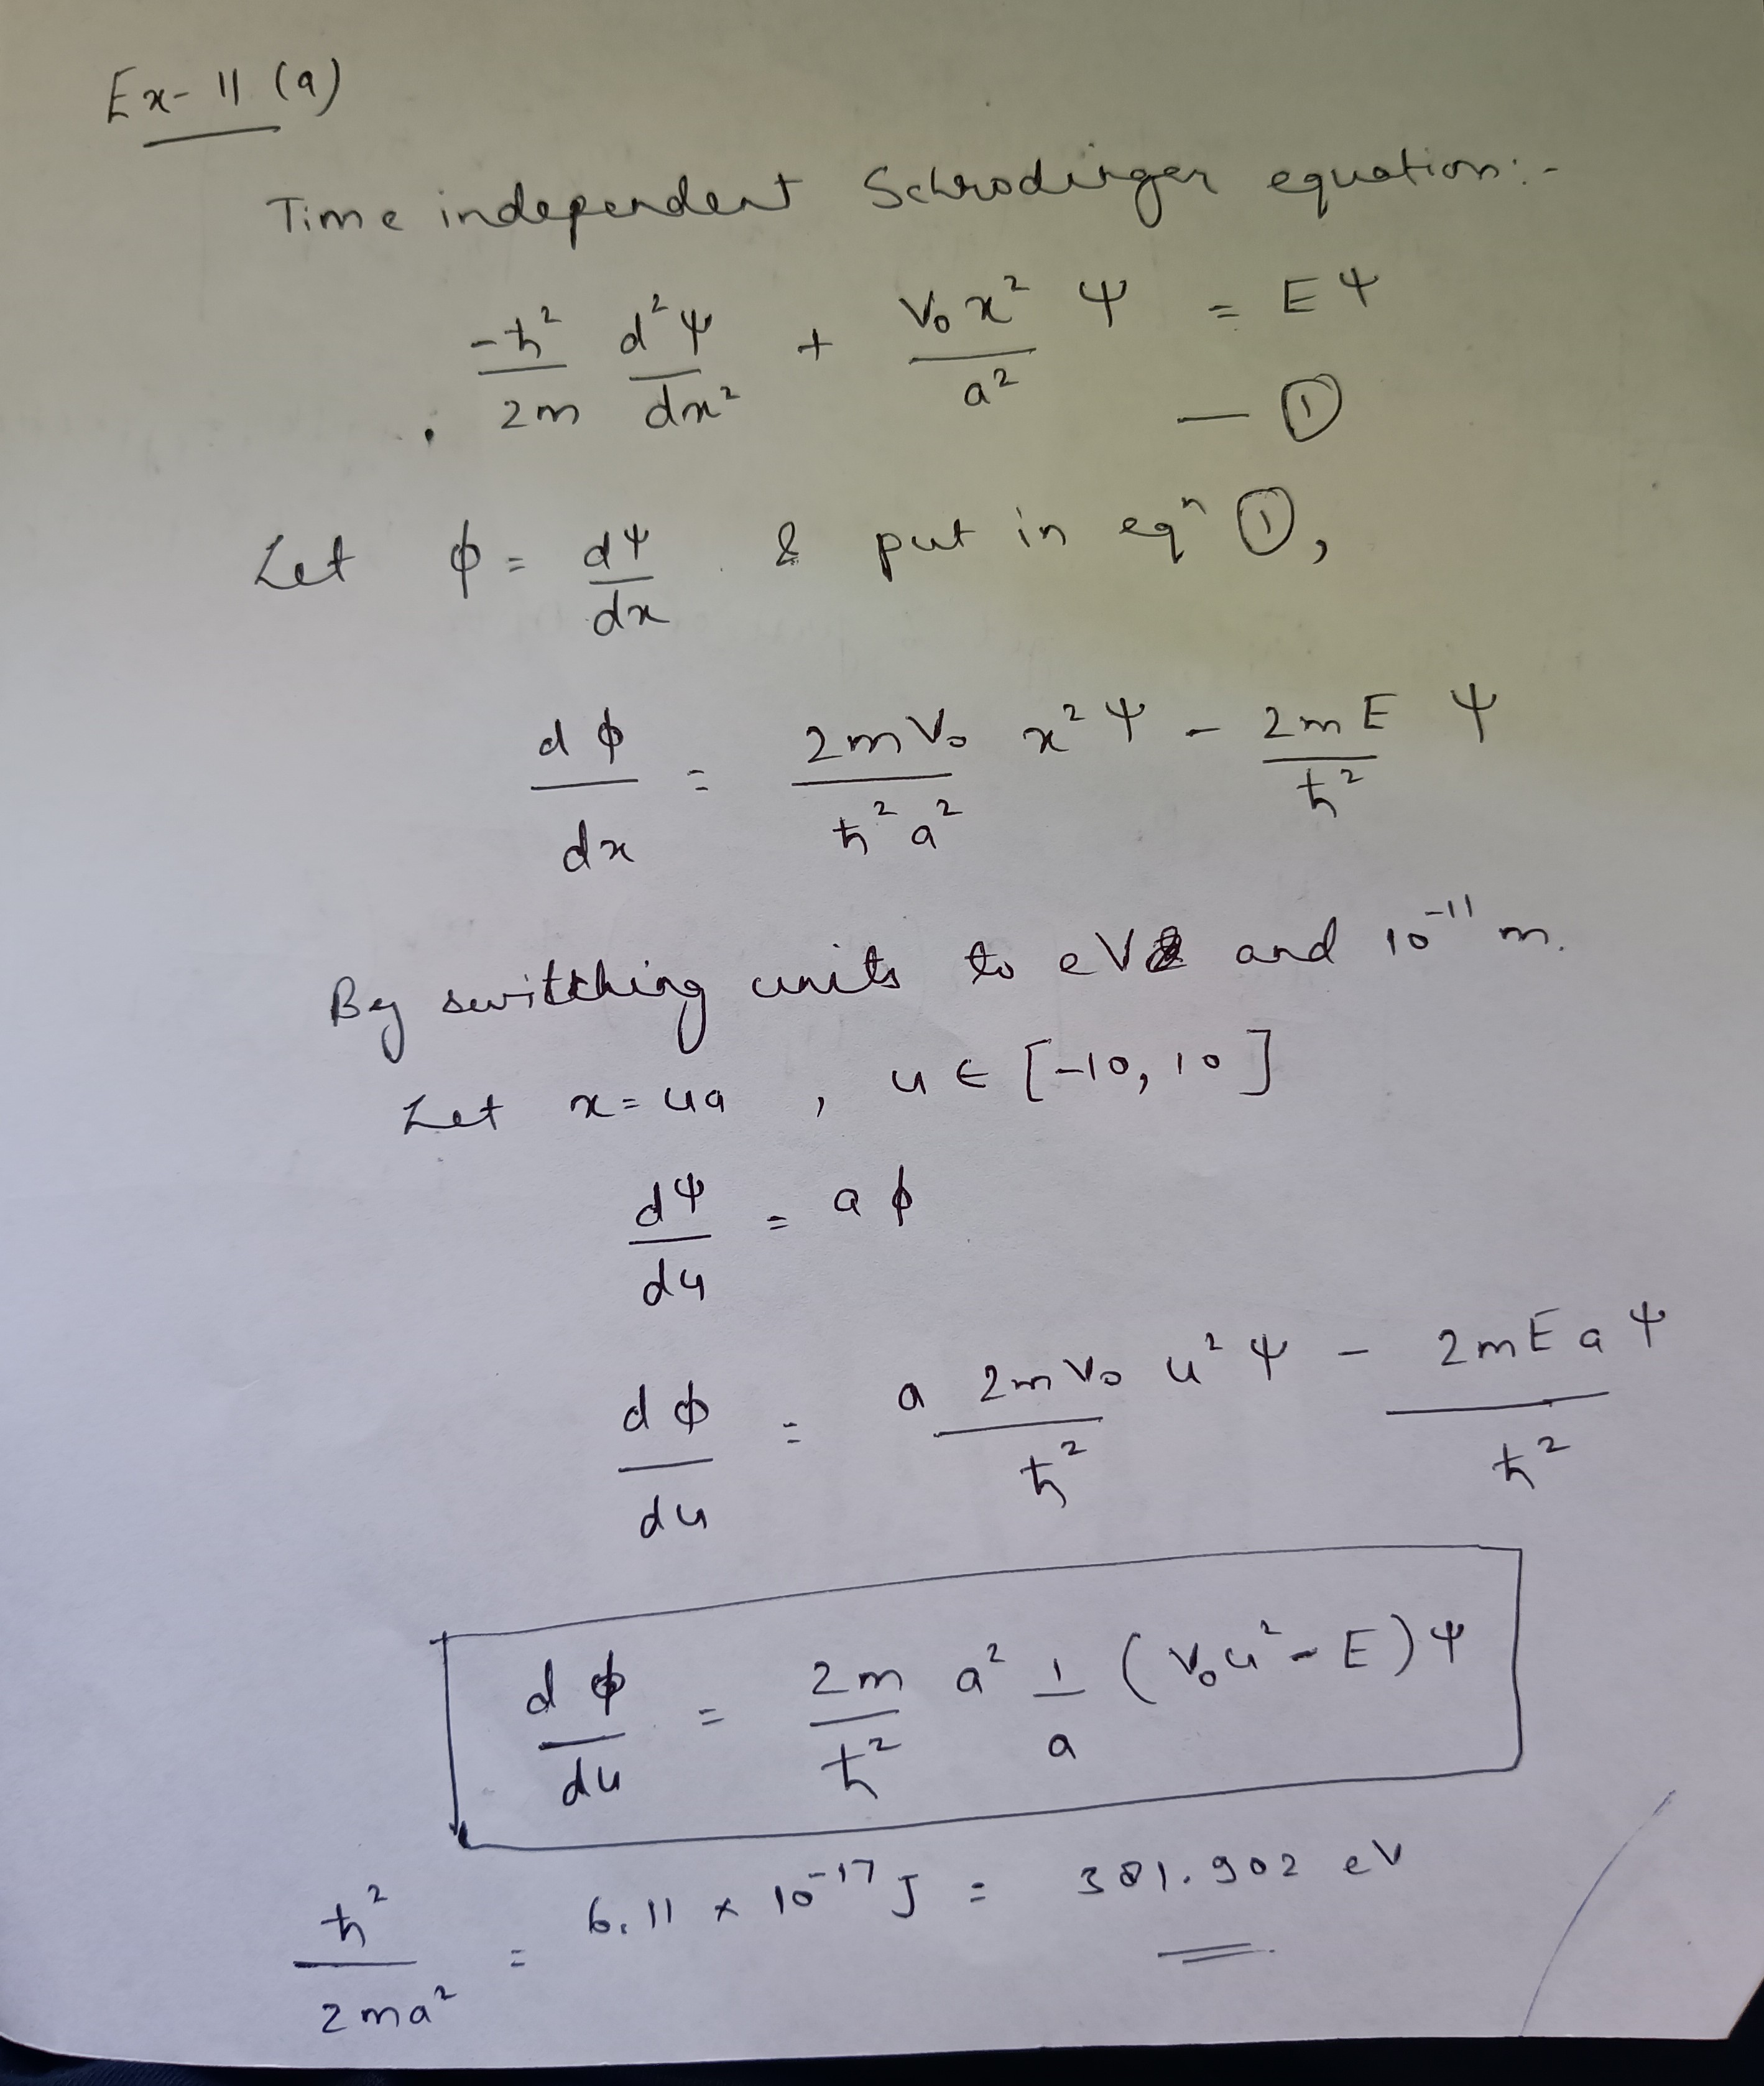 Ex- 11 (a)
Time independent Schrodinger equation:-
-ħ²/2m d²ψ/dx² + V₀x²/a² ψ = Eψ — ①
Let ϕ = dψ/dx & put in eqⁿ ①,
dϕ/dx = 2mV₀/ħ²a² x²ψ - 2mE/ħ² ψ
By switching units to eV and 10⁻¹¹ m.
Let x = ua , u ∈ [-10, 10]
dψ/du = aϕ
dϕ/du = a 2mV₀/ħ² u²ψ - 2mEaψ/ħ²
dϕ/du = 2m/ħ² a² 1/a (V₀u² - E)ψ
ħ²/2ma² = 6.11 x 10⁻¹⁷ J = 381.902 eV